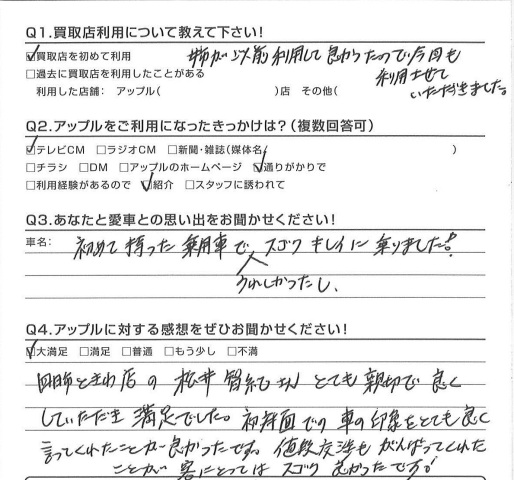 Q1.買取店利用について教えて下さい!
☑買取店を初めて利用
姉が以前利用して良かったので今回も
利用させて
いただきました。
□過去に買取店を利用したことがある
利用した店舗： アップル( )店 その他(
Q2.アップルをご利用になったきっかけは?(複数回答可)
☑テレビCM □ラジオCM □新聞・雑誌(媒体名 )
□チラシ □DM □アップルのホームページ ☑通りがかりで
□利用経験があるので ☑紹介 □スタッフに誘われて
Q3.あなたと愛車との思い出をお聞かせください!
車名： 初めて持った乗用車で、スゴクキレイに乗りました!
うれしかったし、
Q4.アップルに対する感想をぜひお聞かせください!
☑大満足 □満足 □普通 □もう少し □不満
四日市ときわ店の松井智紀さんとても親切で良く
していただき満足でした。初対面での車の印象をとても良く
言ってくれたことが良かったです。値段交渉もがんばってくれた
ことが客にとってはスゴク良かったです!